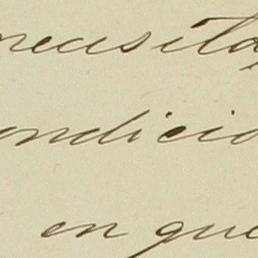 necesita
ondicio
en que